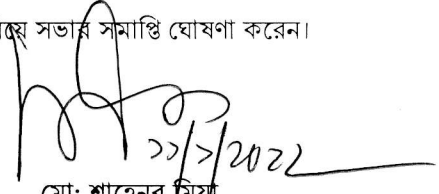 সভার সমাপ্তি ঘোষণা করেন।
১১/১/2022
মো: শাহেনুর মিয়া